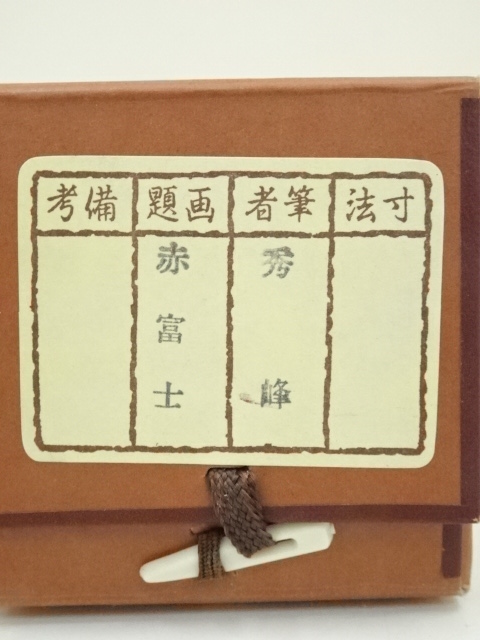 寸法
筆者
画題
備考
秀峰
赤富士